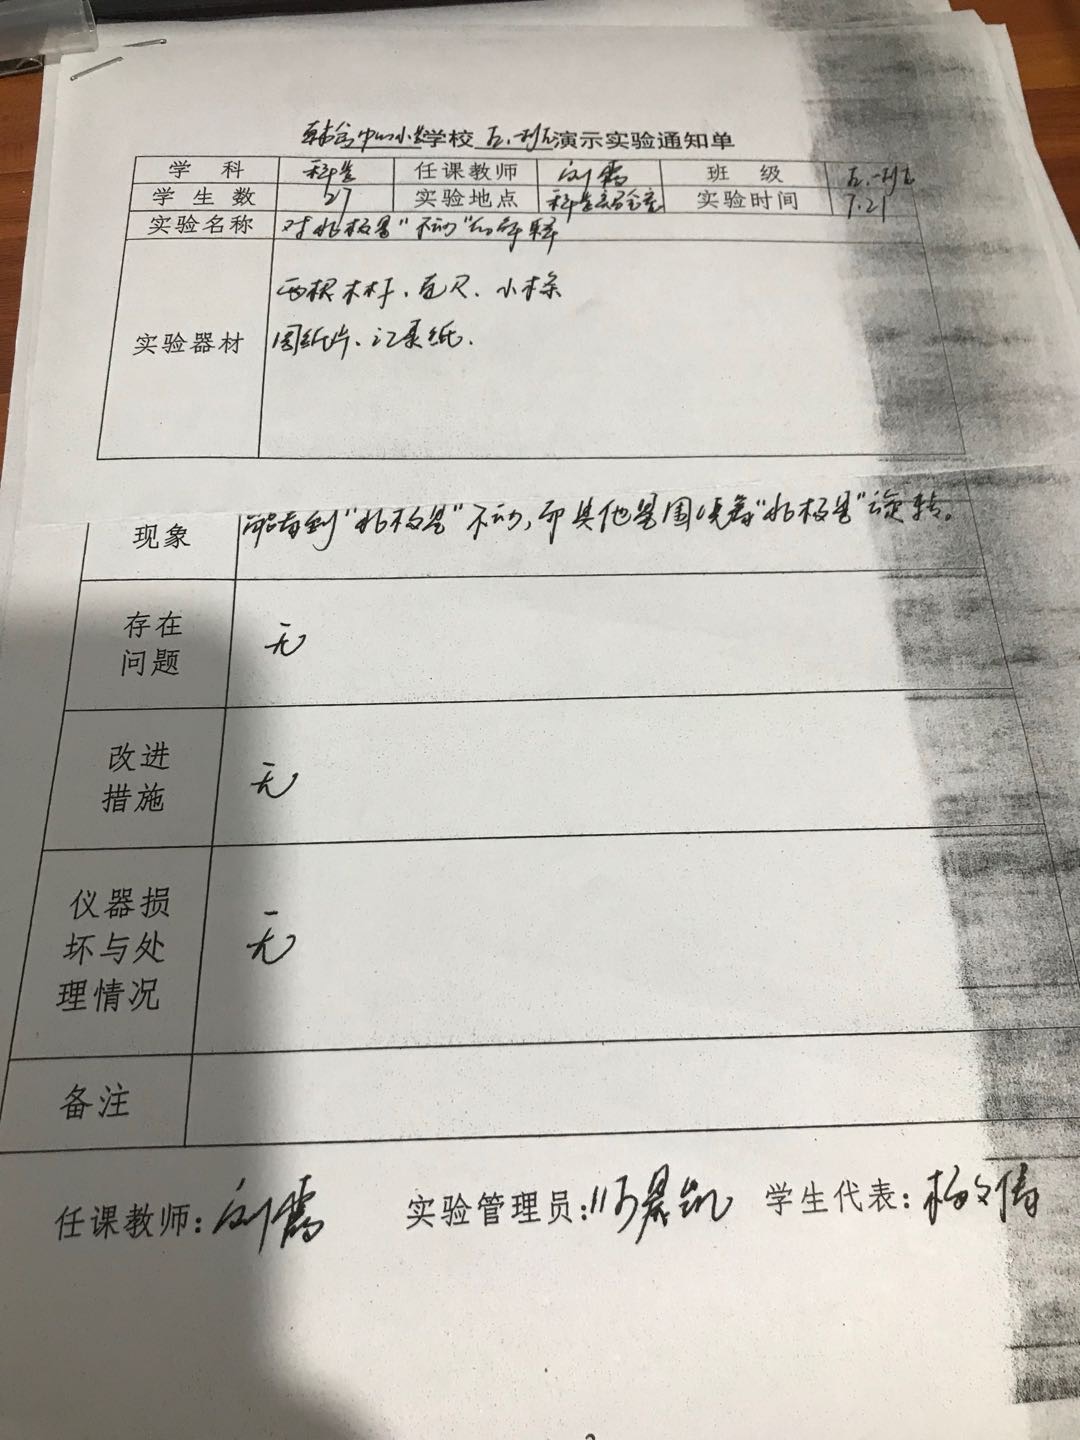 中心小学学校 五.一班演示实验通知单
学 科 科学 任课教师 刘 班 级 五.一班
学 生 数 27 实验地点 科学实验室 实验时间 7.21
实验名称 对北极星“不动”的解释
两根木杆、直尺、小木条
实验器材 圆纸片、记录纸.
现象 能看到“北极星”不动,而其他星围绕着“北极星”旋转。
存在
问题 无
改进
措施 无
仪器损
坏与处 无
理情况
备注
任课教师: 刘 实验管理员: 晨凯 学生代表: 杨文倩